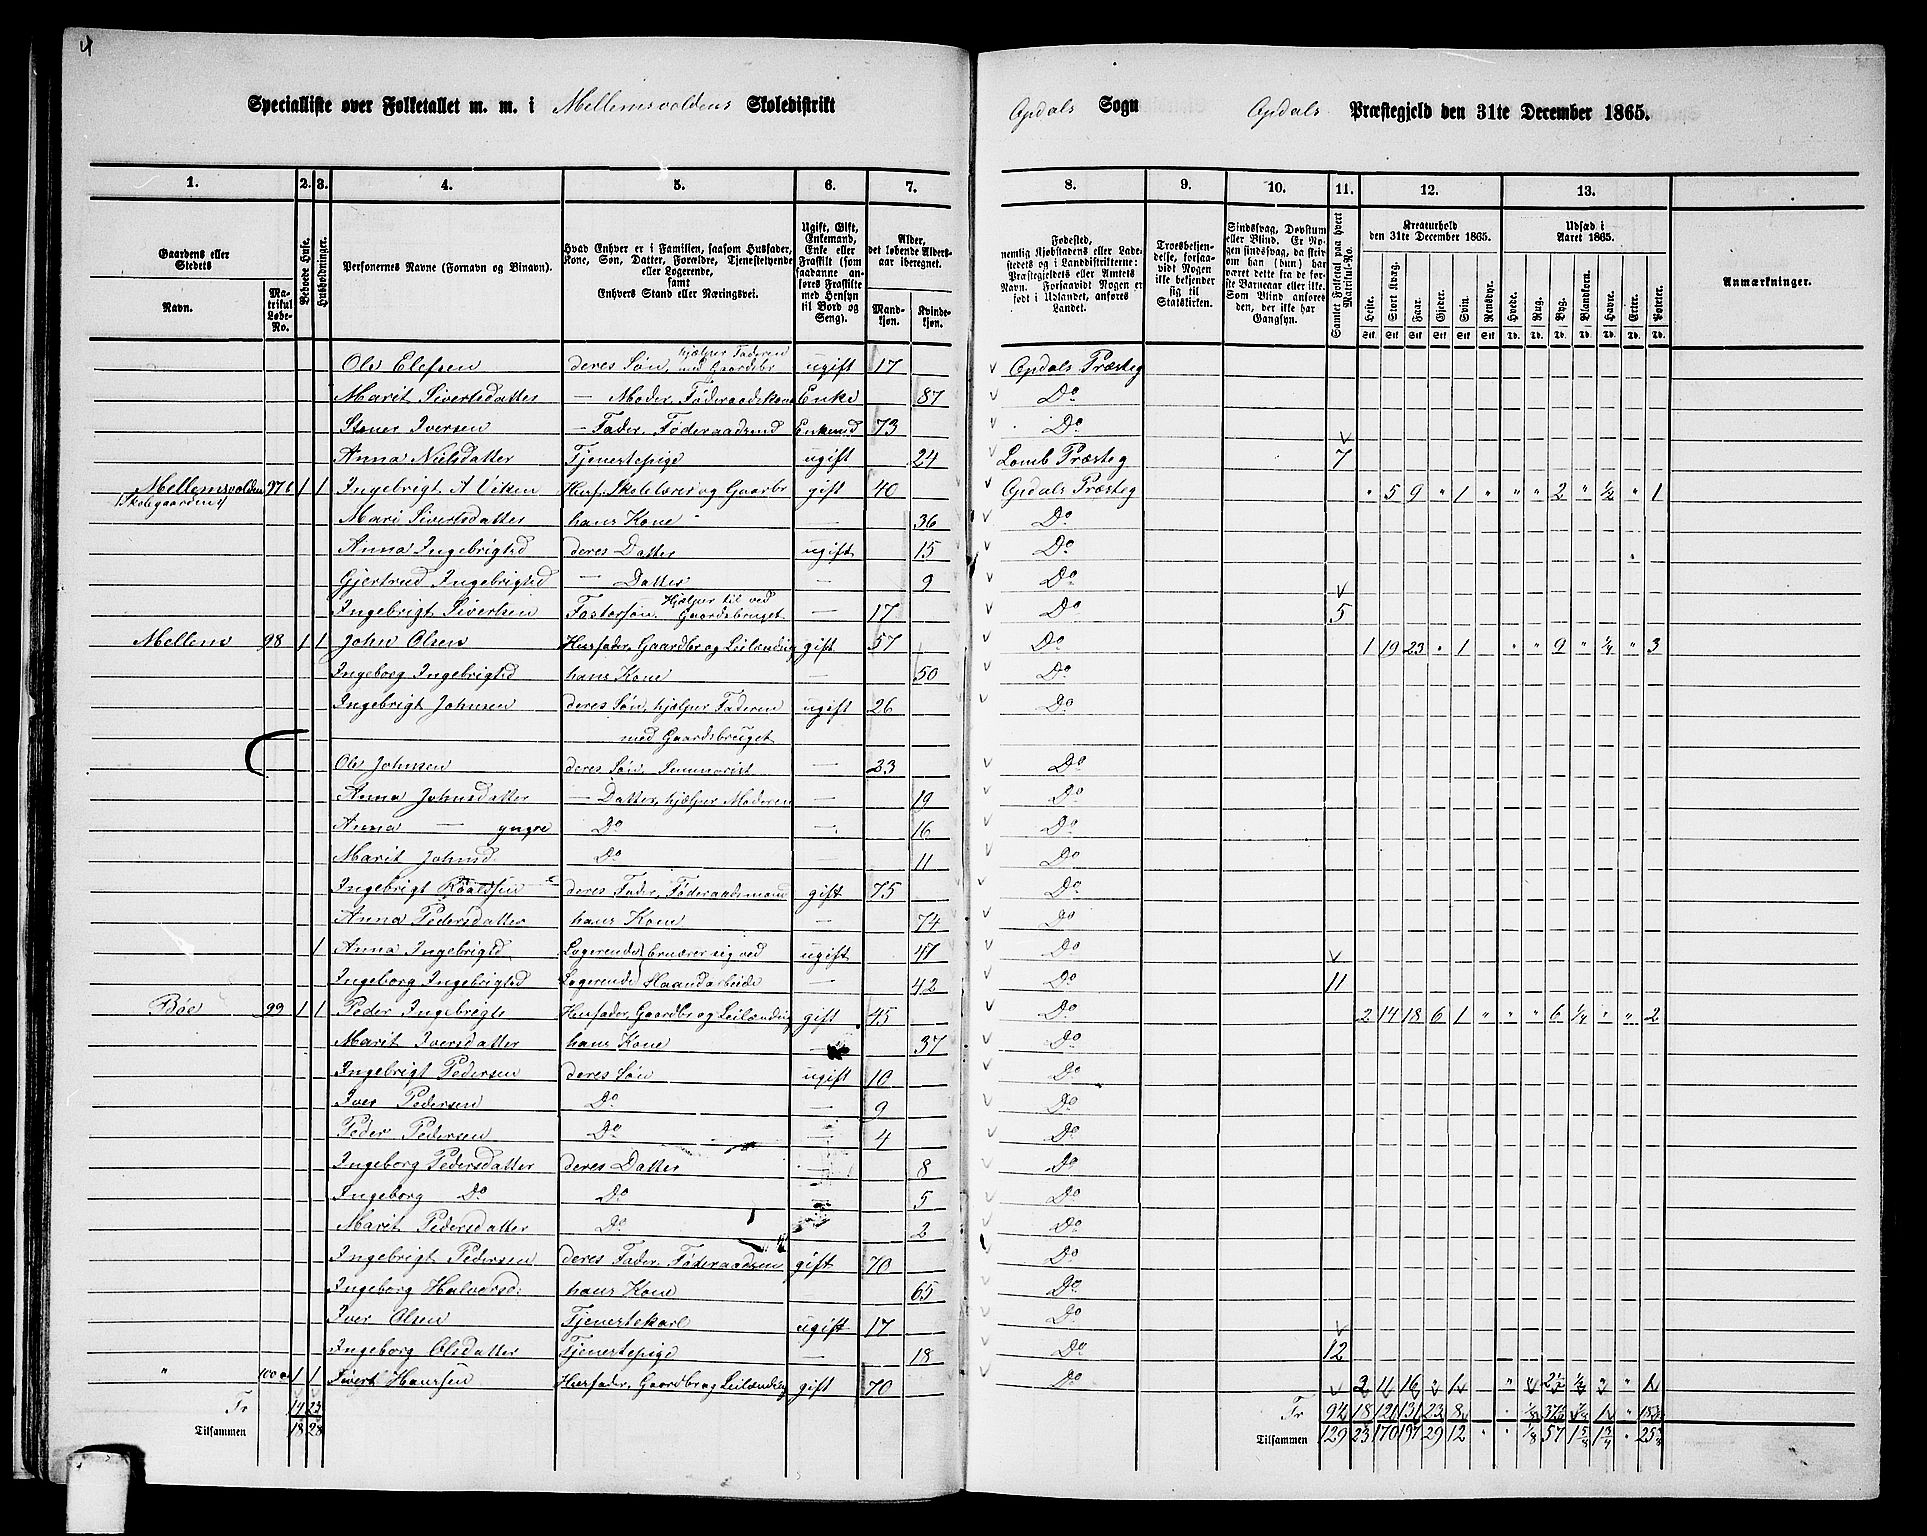 4
Specialliste over Folketallet m. m. i Mellemsvoldens Skoledistrikt
Opdals Sogn Opdals Præstegjeld den 31te December 1865.
1. 2. 3. 4. 5. 6. 7. 8. 9. 10. 11. 12. 13.
Gaardens eller Stedets Navn. Matrikul Løbe-No. Beboede Huse. Husholdninger. Personernes Navne (Fornavn og Binavn). Hvad Enhver er i Familien, saasom Husfader, Kone, Søn, Datter, Forældre, Tjenestetyende eller Logerende, samt Enhvers Stand eller Næringsvei. Ugift, Gift, Enkemand, Enke eller Fraskilt (som saadanne anføres Fraskilte med Hensyn til Bord og Seng). Alder, det løbende Aldersaar iberegnet. Mandkjøn. Kvindekjøn.
Fødested, nemlig Kjøbstadens eller Ladestedets og i Landdistrikterne: Præstegjeldets eller Amtets Navn. Forsaavidt Nogen er født i Udlandet, anføres Landet. Troesbekjendelse, forsaavidt Nogen ikke bekjender sig til Statskirken. Sindssvag, Døvstum eller Blind. Er Nogen sindssvag, da skriv om han (hun) har været dette fra de første Barneaar eller ei. Som Blind anføres den, der ikke har Gangsyn. Samlet Folketal paa hvert Matrikul-No. Kreaturhold den 31te December 1865. Heste. Stort Kvæg. Faar. Gjeder. Svin. Rensdyr. Udsæd i Aaret 1865. Hvede. Rug. Byg. Blandkorn. Havre. Erter. Poteter. Anmærkninger.
Ole Elefsen deres Søn, hjælper Faderen med Gaardsbr ugift 17 Opdals Præsteg
Marit Sivertsdatter — Moder, Føderaadskone Enke 87 Do
Stener Iversen — Fader, Føderaadsmd Enkemd 73 Do
Anna Nielsdatter Tjenestepige ugift 24 Lomb Præsteg 7
Mellemsvolden (Skolegaarden) 97b 1 1 Ingebrigt A Viken Husf. Skolelærer og Gaardbr gift 40 Opdals Præsteg " 5 9 " 1 " " " 2 " ½ " 1
Mari Sivertsdatter hans Kone — 36 Do
Anna Ingebrigtsd deres Datter ugift 15 Do
Gjertrud Ingebrigtsd — Datter — 9 Do
Ingebrigt Sivertsen Fostersøn, Hjælper til ved Gaardsbruget — 17 Do 5
Mellem 98 1 1 John Olsen Husfader, Gaardbr og Leilænding gift 57 Do 1 19 23 " 1 " " " 9 " ¼ " 3
Ingeborg Ingebrigtsd hans Kone — 50 Do
Ingebrigt Johnsen deres Søn, hjælper Faderen ugift 26 Do
med Gaardsbruget
Ole Johnsen deres Søn Seminarist — 23 Do
Anna Johnsdatter — Datter, hjælper Moderen — 19 Do
Anna — yngre Do — 16 Do
Marit Johnsd. Do — 11 Do
Ingebrigt Roaldsen deres Fader, Føderaadsmand gift 75 Do
Anna Pedersdatter hans Kone — 74 Do
1 Anna Ingebrigtsd. Logerende) ernærer sig ved ugift 47 Do
Ingeborg Ingebrigtsd Logerende) Haandarbeide — 42 Do 11
Bøe 99 1 1 Peder Ingebrigts Husfader, Gaardbr og Leilænding gift 45 Do 2 14 18 6 1 " " " 6 ¼ " " 2
Marit Iversdatter hans Kone — 37 Do
Ingebrigt Pedersen deres Søn ugift 10 Do
Iver Pedersen Do — 9 Do
Peder Pedersen Do — 4 Do
Ingeborg Pedersdatter deres Datter — 8 Do
Ingeborg Do Do — 5 Do
Marit Pedersdatter Do — 2 Do
Ingebrigt Pedersen deres Fader, Føderaadsm gift 70 Do
Ingeborg Halversd. hans Kone 65 Do
Iver Olsen Tjenestekarl ugift 17 Do
Ingeborg Olsdatter Tjenestepige — 18 Do 12
" 100a 1 1 Sivert Hansen Husfader, Gaardbr og Leilænding gift 70 Do 2 11 16 2 1 " 2½ ½ 2 " 1
Fr 14 23 Fr 94 18 121 131 23 8
Tilsammen 18 28 Tilsammen 129 23 170 197 29 12 " " ⅛ 57 1⅝ 1¾ " 25⅜